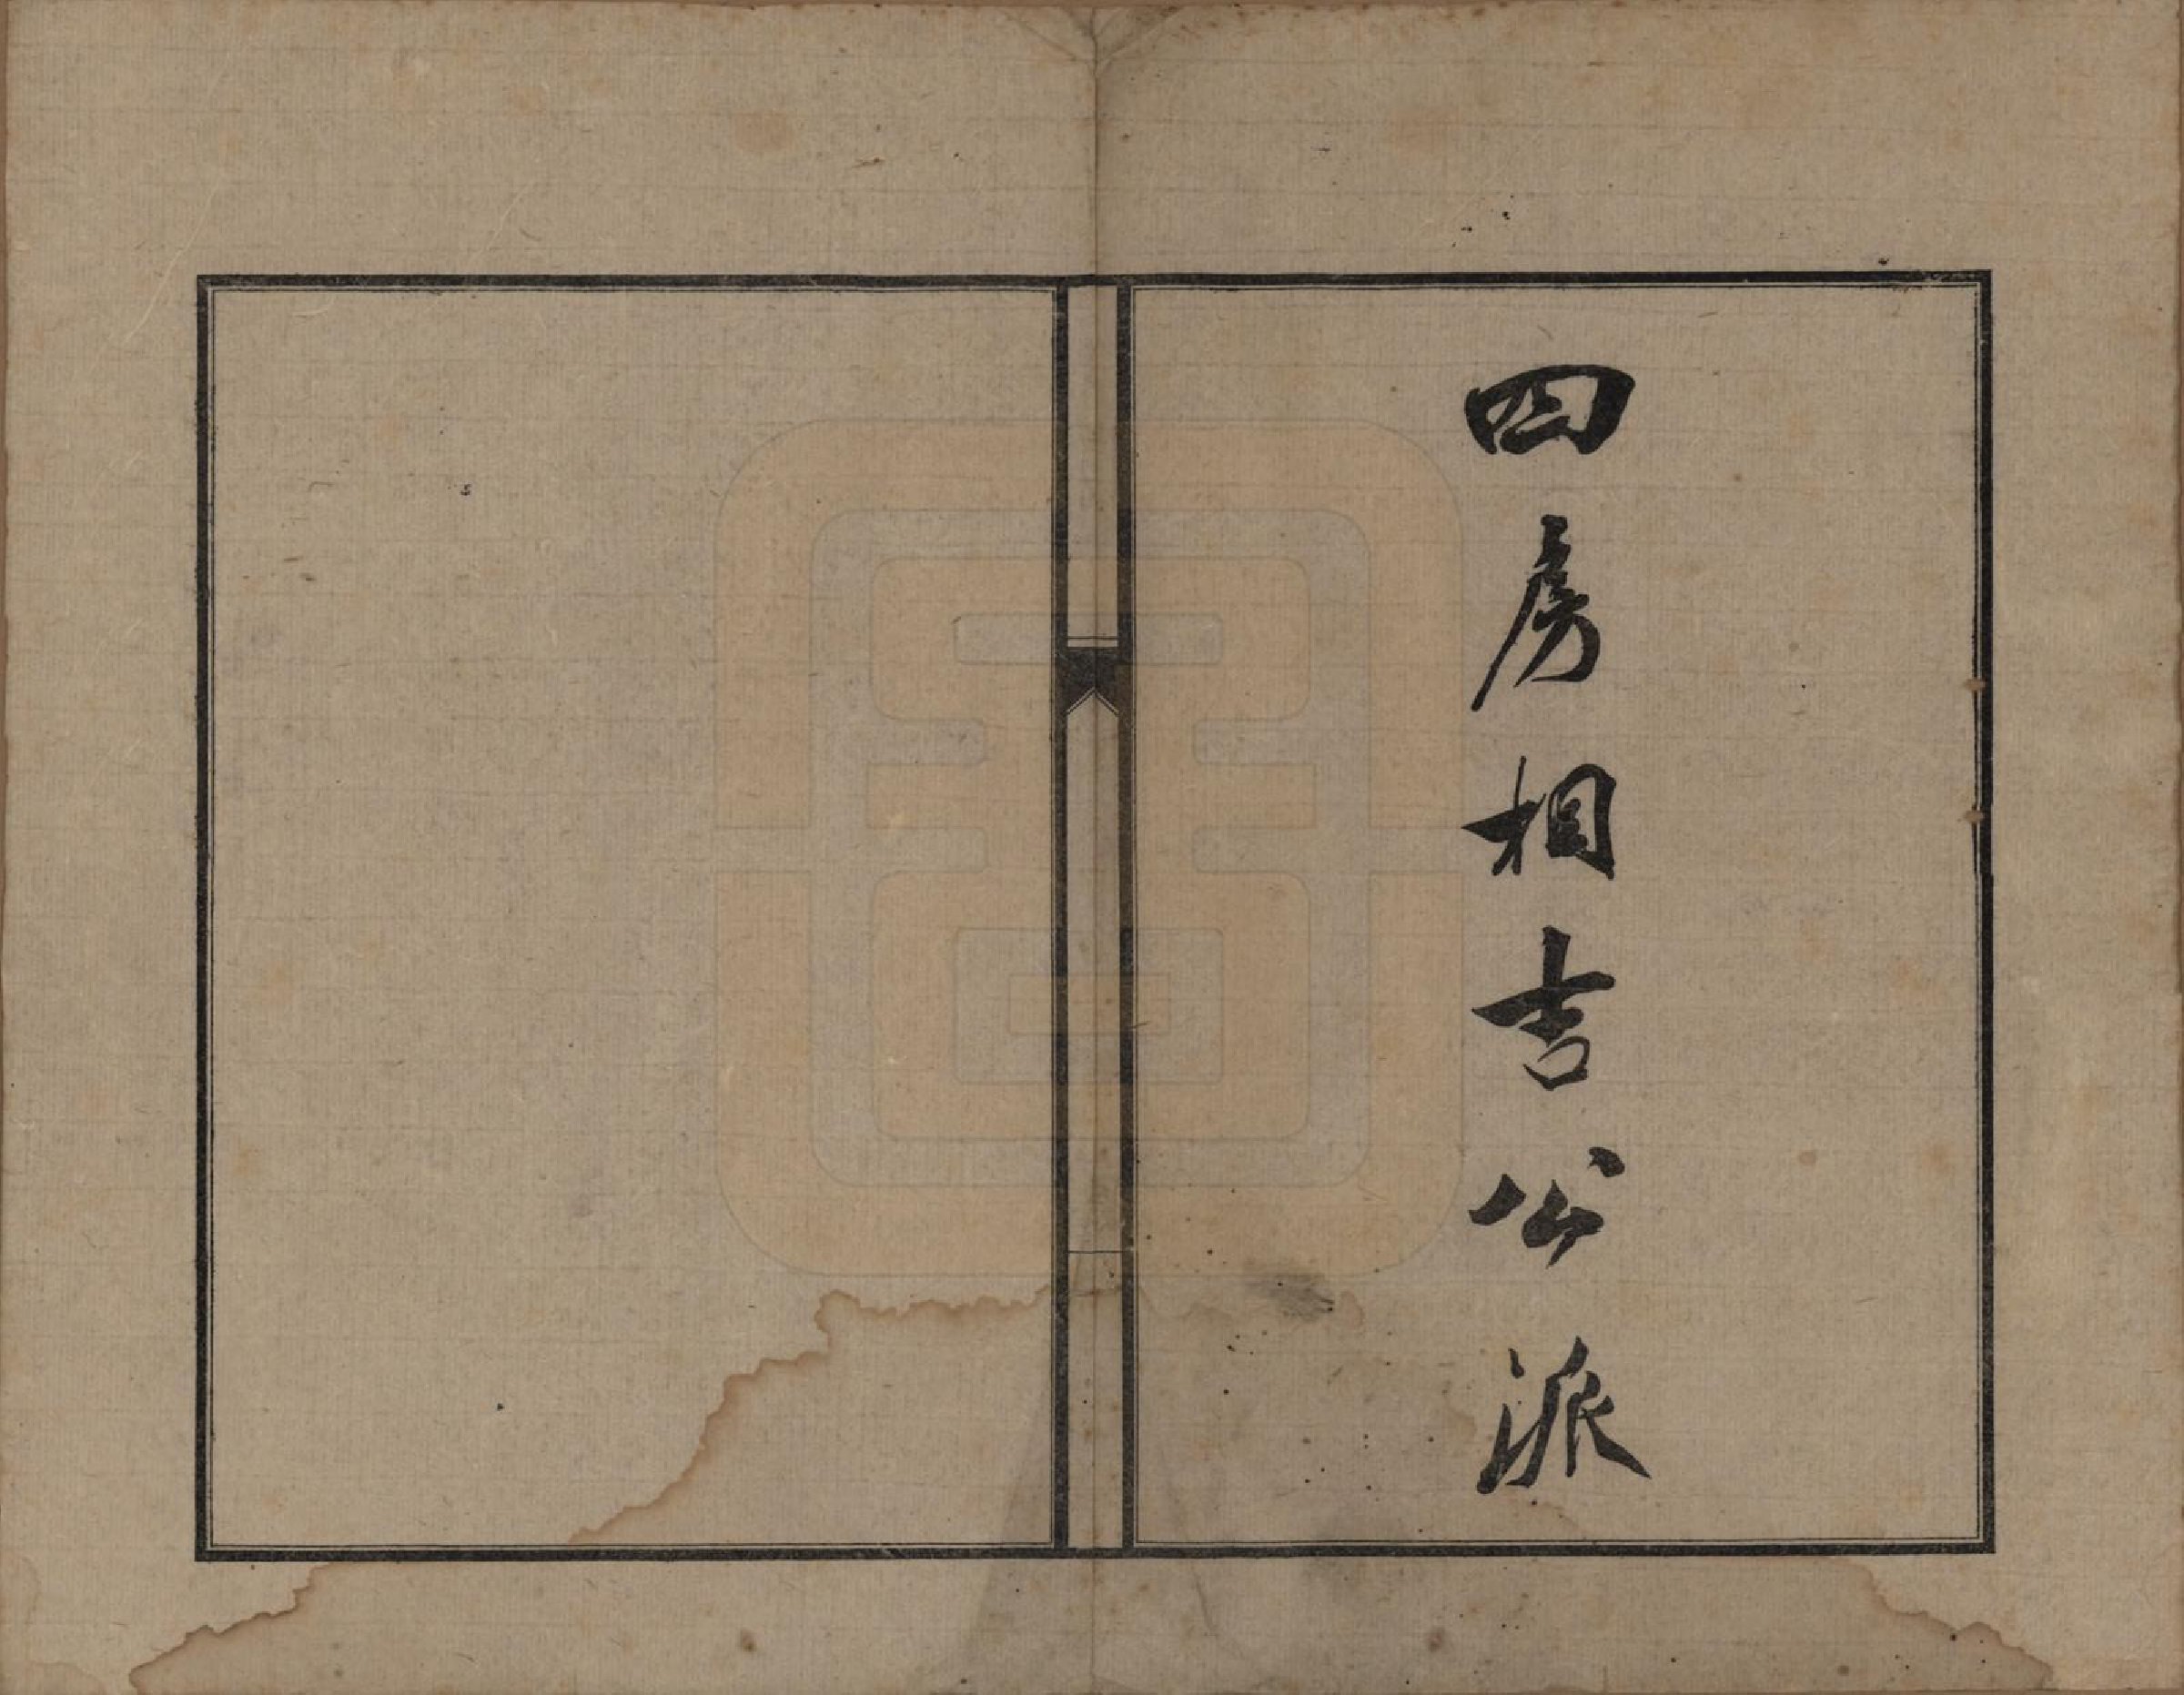 四房相吉公派